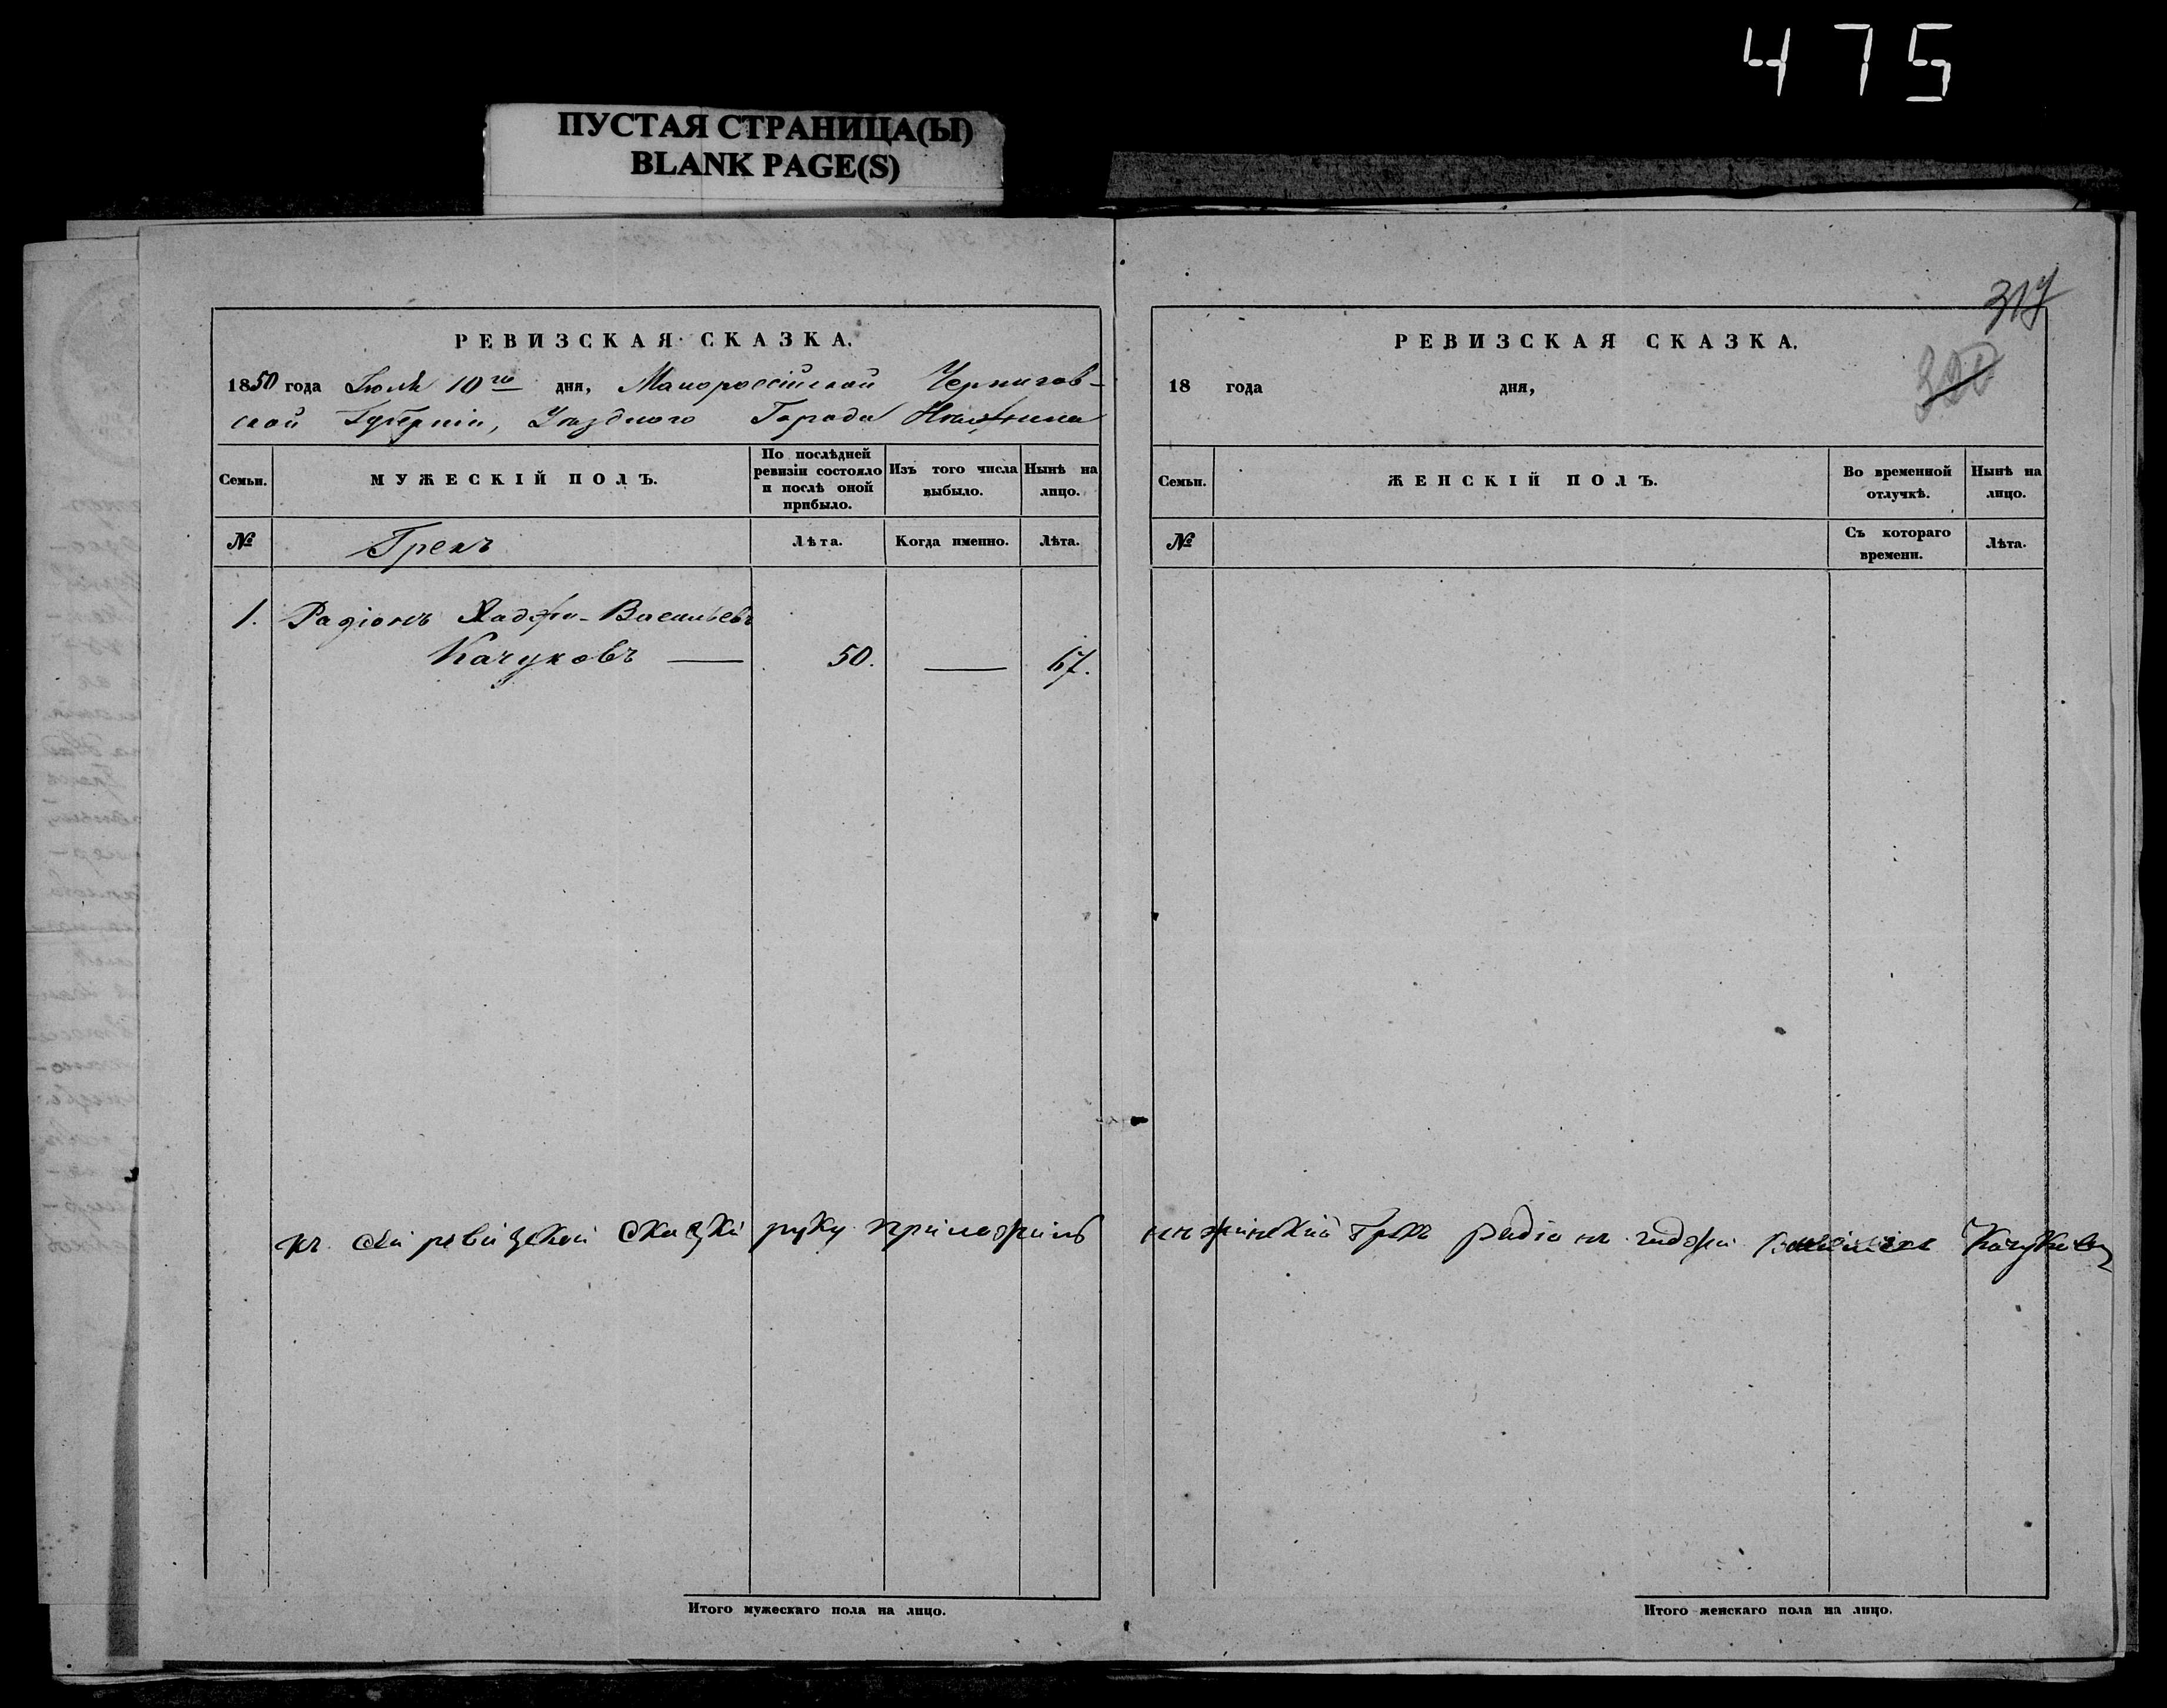 475
ПУСТАЯ СТРАНИЦА(Ы)
BLANK PAGE(S)
РЕВИЗСКАЯ СКАЗКА.
1850 года Іюля 10го дня, Малороссійской Чернигов-
ской Губерніи, Уезднаго Города Нѣжина
Семьи.
МУЖЕСКІЙ ПОЛЪ.
По послѣдней ревизіи состояло и послѣ оной прибыло.
Изъ того числа выбыло.
Нынѣ на лицо.
№
Грекъ
Лѣта.
Когда именно.
Лѣта.
1. Радіонъ Хаджи-Васильевъ
Качуковъ — 50. — 67.
къ сей ревизской сказки руку приложилъ
Итого мужескаго пола на лицо.
319
320
РЕВИЗСКАЯ СКАЗКА.
18 года дня,
Семьи.
ЖЕНСКІЙ ПОЛЪ.
Во временной отлучкѣ.
Нынѣ на лицо.
№
Съ котораго времени.
Лѣта.
нѣжинскій Грекъ Радіонъ хаджи Васильевъ Качуковъ
Итого женскаго пола на лицо.